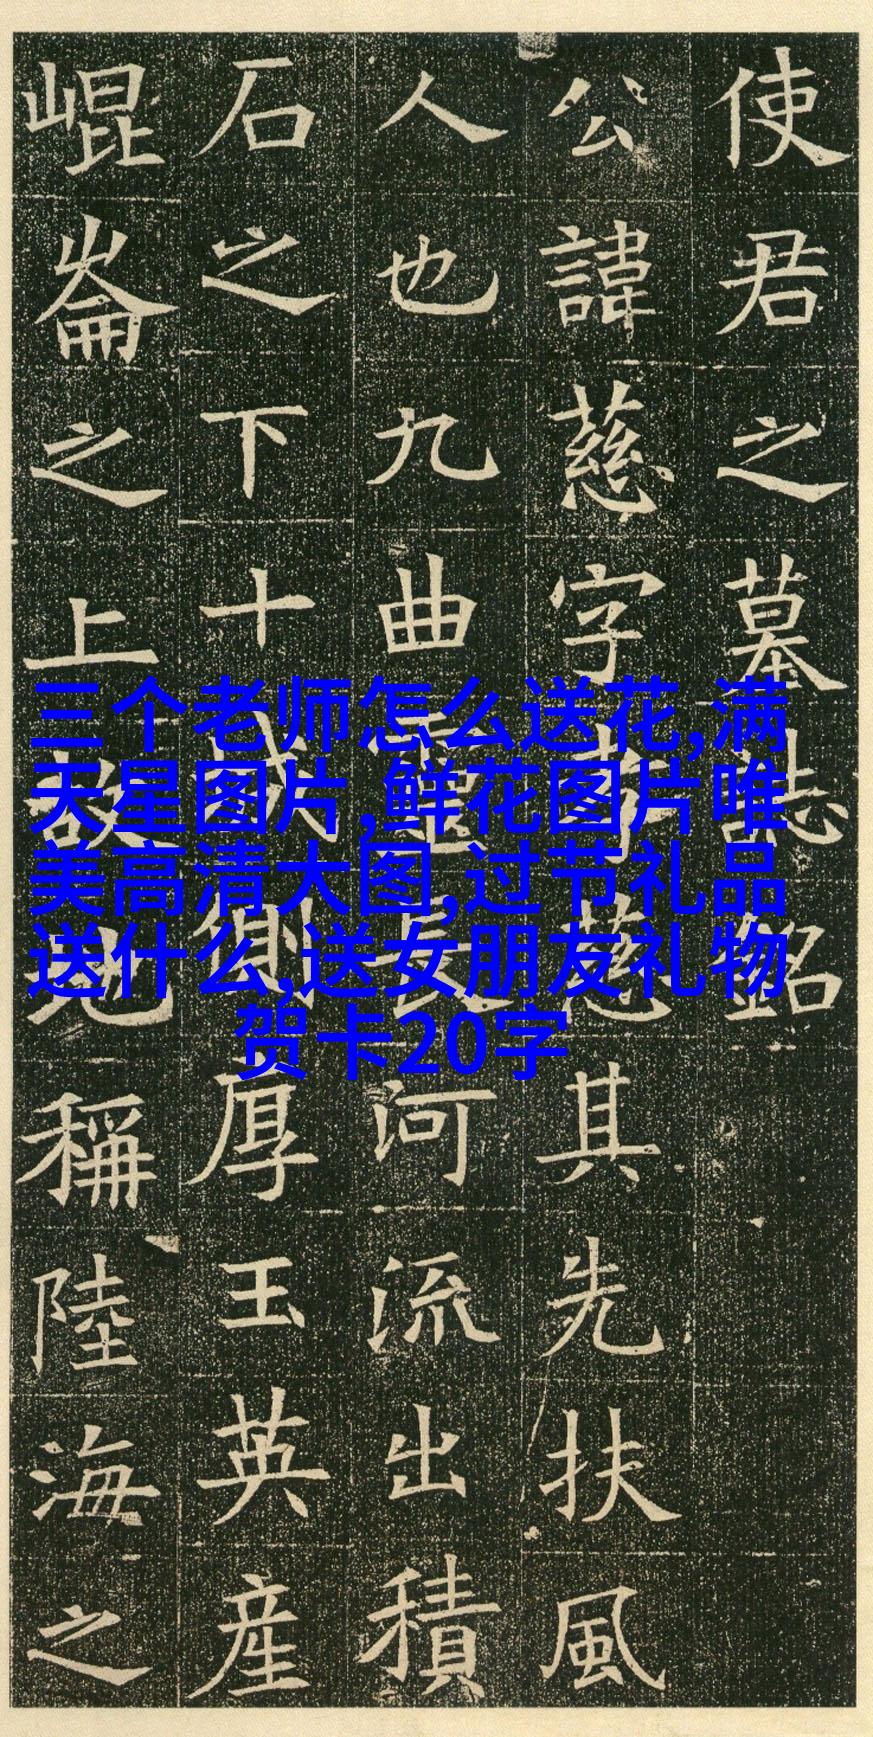 使君之墓誌銘
公諱慈字孝慈其先扶風
人也九曲靈長河流出積
石之下十城側厚玉英産
崐崙之上故地稱陸海之
三个老师怎么送花,满
天星图片,鲜花图片唯
美高清大图,过节礼品
送什么,送女朋友礼物
贺卡20字